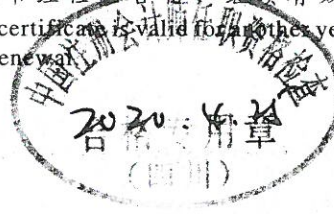 certificate is valid for another ye
enewal.
中国注册会计师任职资格检查
2020.4.
合格专用章
(四川)